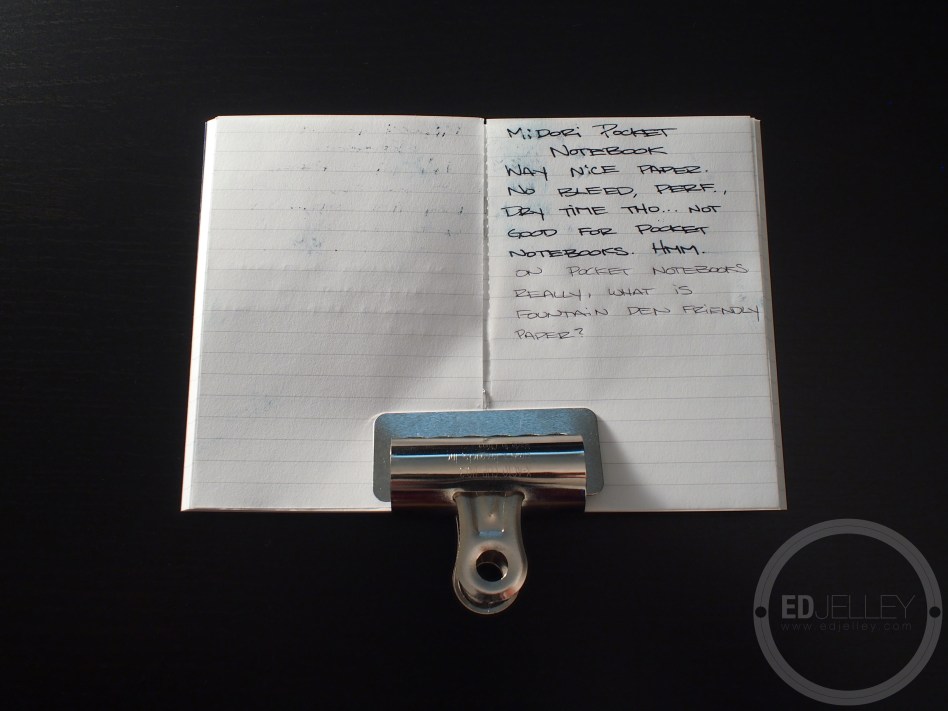 MiDORi POCKET
NOTEBOOK
WAY NiCE PAPER.
NO BLEED, PERF.,
DRY TiME THO... NOT
GOOD FOR POCKET
NOTEBOOKS. HMM.
ON POCKET NOTEBOOKS
REALLY, WHAT iS
FOUNTAiN PEN FRiENDLY
PAPER?
EDJELLEY
www.edjelley.com